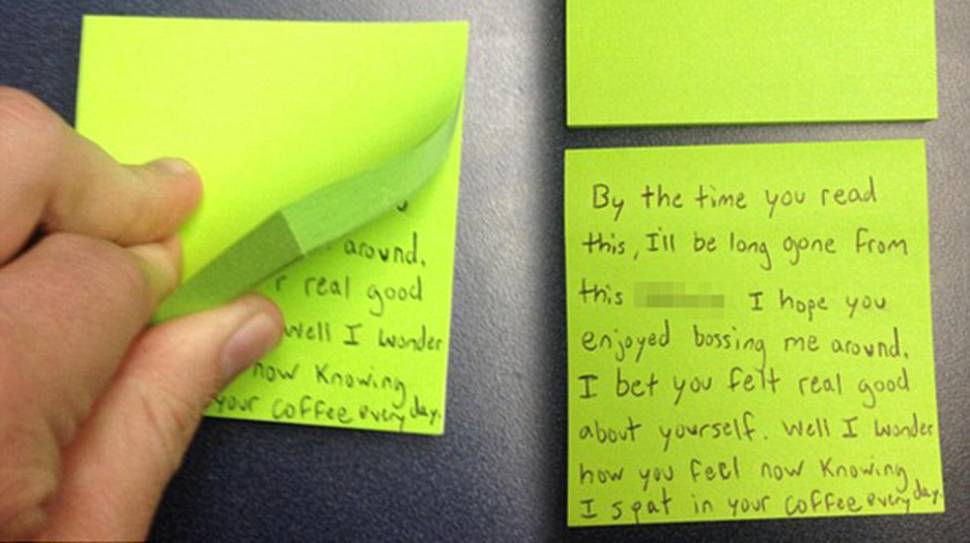 around.
r real good
Well I wonder
now Knowing
your coffee every day.
By the time you read
this, I'll be long gone from
this I hope you
enjoyed bossing me around.
I bet you felt real good
about yourself. Well I wonder
how you feel now Knowing
I spat in your coffee every day.